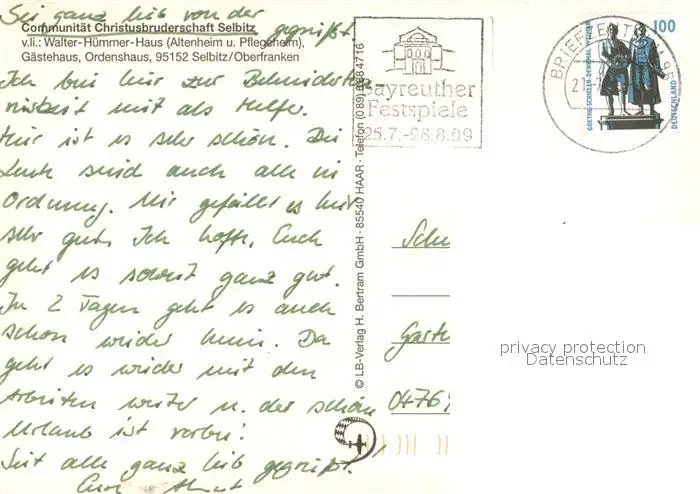 Sei ganz lieb von der
gegrüßt
Communität Christusbruderschaft Selbitz
v.li.: Walter-Hümmer-Haus (Altenheim u. Pflegeheim),
Gästehaus, Ordenshaus, 95152 Selbitz/Oberfranken
Ich bin hier zur Behinderten
freizeit mit als Helfer.
Hier ist es sehr schön. Die
Leute sind auch alle in
Ordnung. Mir gefällt es hier
sehr gut. Ich hoffe, Euch
geht es soweit ganz gut.
In 2 Tagen geht es auch
schon wieder heim. Da
geht es wieder mit den
Arbeiten weiter u. der schöne
Urlaub ist vorbei!
Seit alle ganz lieb gegrüßt.
Eure
© LB-Verlag H. Bertram GmbH · 85540 HAAR · Telefon (0 89) 4
Bayreuther
Festspiele
25.7.-28.8.99
BRIEFZENTRUM 95
21
100
GOETHE-SCHILLER-DENKMAL WEIMAR
DEUTSCHLAND
Sch
Garte
0476
privacy protection
Datenschutz